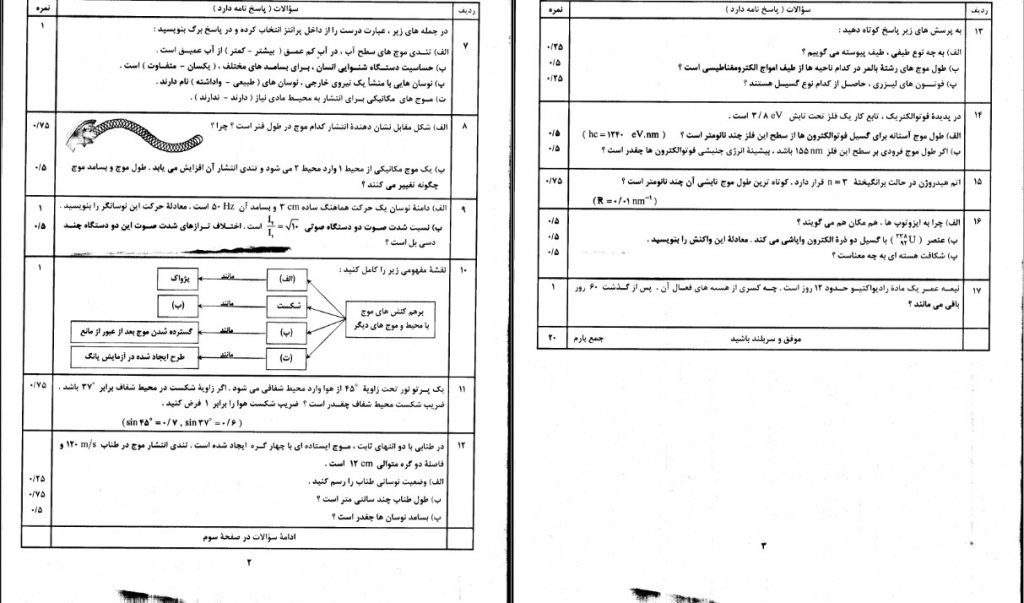 ردیف	سؤالات ( پاسخ نامه دارد )	نمره
۷	در جمله های زیر ، عبارت درست را از داخل پرانتز انتخاب کرده و در پاسخ برگ بنویسید :	۱
الف) تندی موج های سطح آب ، در آب کم عمق ( بیشتر - کمتر ) از آب عمیق است .
ب) حساسیت دستگاه شنوایی انسان ، برای بسامد های مختلف ، ( یکسان - متفاوت ) است .
پ) نوسان هایی با منشأ یک نیروی خارجی ، نوسان های ( طبیعی - واداشته ) نام دارند .
ت) موج های مکانیکی برای انتشار به محیط مادی نیاز ( دارند - ندارند ) .
۸	الف) شکل مقابل نشان دهندهٔ انتشار کدام موج در طول فنر است ؟ چرا ؟	۰/۷۵
ب) یک موج مکانیکی از محیط ۱ وارد محیط ۲ می شود و تندی انتشار آن افزایش می یابد . طول موج و بسامد موج	۰/۵
چگونه تغییر می کنند ؟
۹	الف) دامنهٔ نوسان یک حرکت هماهنگ ساده ۳ cm و بسامد آن ۵۰ Hz است . معادلهٔ حرکت این نوسانگر را بنویسید .	۱
ب) نسبت شدت صوت دو دستگاه صوتی I₂/I₁ = √۱۰ است . اختلاف ترازهای شدت صوت این دو دستگاه چند	۰/۵
دسی بل است ؟
۱۰	نقشهٔ مفهومی زیر را کامل کنید :	۱
برهم کنش های موج
با محیط و موج های دیگر
(الف) مانند پژواک
شکست مانند (ب)
(پ) مانند گسترده شدن موج بعد از عبور از مانع
(ت) مانند طرح ایجاد شده در آزمایش یانگ
۱۱	یک پرتو نور تحت زاویهٔ ۴۵° از هوا وارد محیط شفافی می شود . اگر زاویهٔ شکست در محیط شفاف برابر ۳۷° باشد .	۰/۷۵
ضریب شکست محیط شفاف چقدر است ؟ ضریب شکست هوا را برابر ۱ فرض کنید .
( sin ۴۵° = ۰/۷ , sin ۳۷° = ۰/۶ )
۱۲	در طنابی با دو انتهای ثابت ، موج ایستاده ای با چهار گره ایجاد شده است . تندی انتشار موج در طناب ۱۲۰ m/s و
فاصلهٔ دو گره متوالی ۱۲ cm است .
الف) وضعیت نوسانی طناب را رسم کنید .	۰/۲۵
ب) طول طناب چند سانتی متر است ؟	۰/۷۵
پ) بسامد نوسان ها چقدر است ؟	۰/۵
ادامهٔ سؤالات در صفحهٔ سوم
۲
ردیف	سؤالات ( پاسخ نامه دارد )	نمره
۱۳	به پرسش های زیر پاسخ کوتاه دهید :
الف) به چه نوع طیفی ، طیف پیوسته می گوییم ؟	۰/۲۵
ب) طول موج های رشتهٔ بالمر در کدام ناحیه ها از طیف امواج الکترومغناطیسی است ؟	۰/۵
پ) فوتسون های لیزری ، حاصل از کدام نوع گسیل هستند ؟	۰/۲۵
۱۴	در پدیدهٔ فوتوالکتریک ، تابع کار یک فلز تحت تابش ۳/۸ eV است .
الف) طول موج آستانه برای گسیل فوتوالکترون ها از سطح این فلز چند نانومتر است ؟ ( hc = ۱۲۴۰ eV.nm )	۰/۵
ب) اگر طول موج فرودی بر سطح این فلز ۱۵۵ nm باشد ، بیشینهٔ انرژی جنبشی فوتوالکترون ها چقدر است ؟	۰/۵
۱۵	اتم هیدروژن در حالت برانگیختهٔ n = ۳ قرار دارد . کوتاه ترین طول موج تابشی آن چند نانومتر است ؟	۰/۷۵
( R = ۰/۰۱ nm⁻¹ )
۱۶	الف) چرا به ایزوتوپ ها ، هم مکان هم می گویند ؟	۰/۵
ب) عنصر ( ²³⁸₉₂U ) با گسیل دو ذرهٔ الکترون واپاشی می کند . معادلهٔ این واکنش را بنویسید .	۰/۵
پ) شکافت هسته ای به چه معناست ؟	۰/۵
۱۷	نیمه عمر یک مادهٔ رادیواکتیو حدود ۱۲ روز است . چه کسری از هسته های فعال آن ، پس از گذشت ۶۰ روز	۱
باقی می مانند ؟
موفق و سربلند باشید	جمع بارم	۲۰
۳